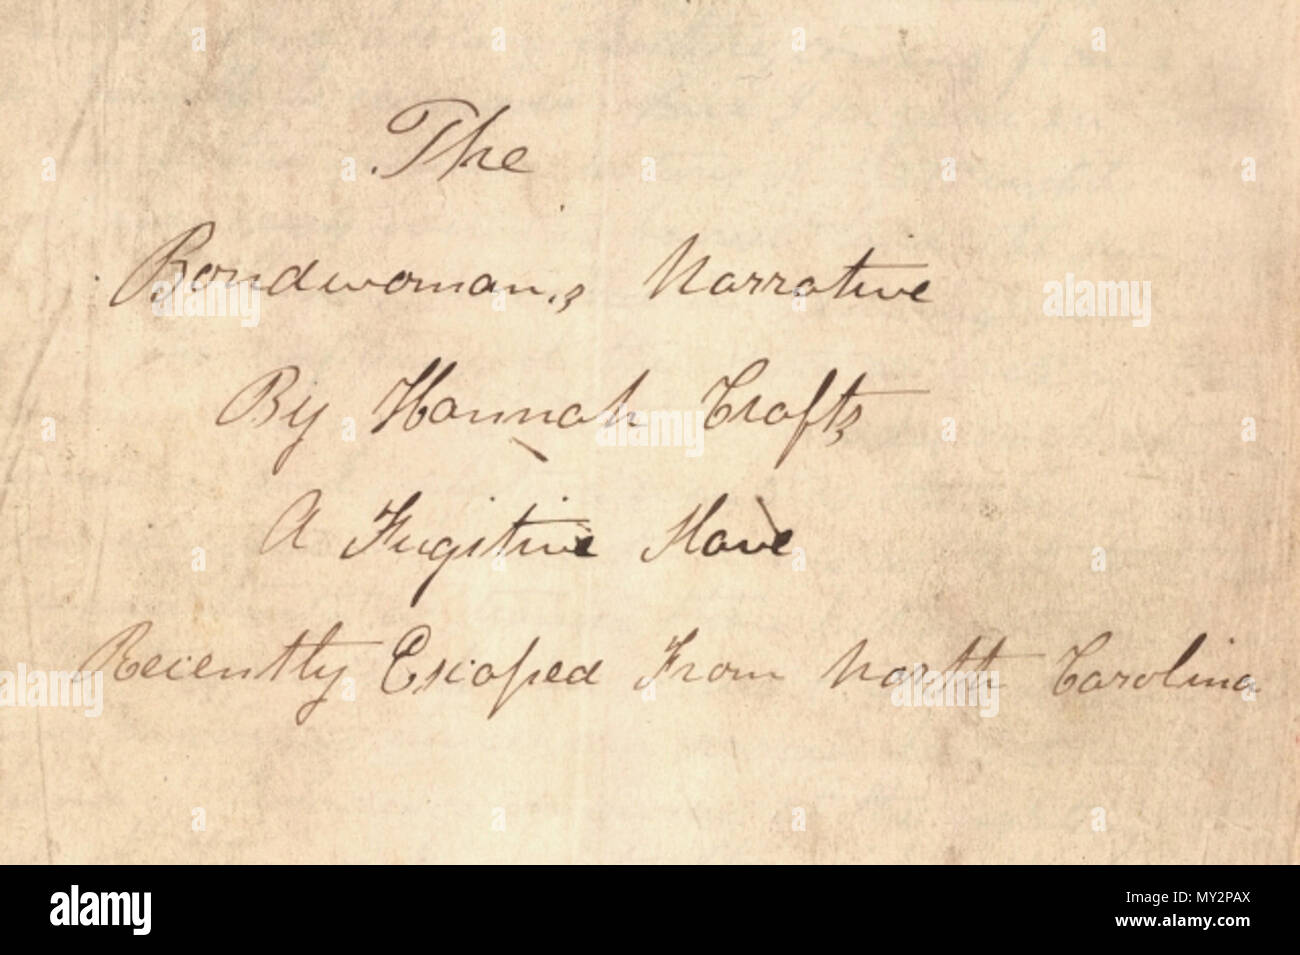 The
Bondwoman's Narrative
By Hannah Crafts
A Fugitive Slave
Recently Escaped From North Carolina
alamy
alamy
Image ID: MY2PAX
www.alamy.com